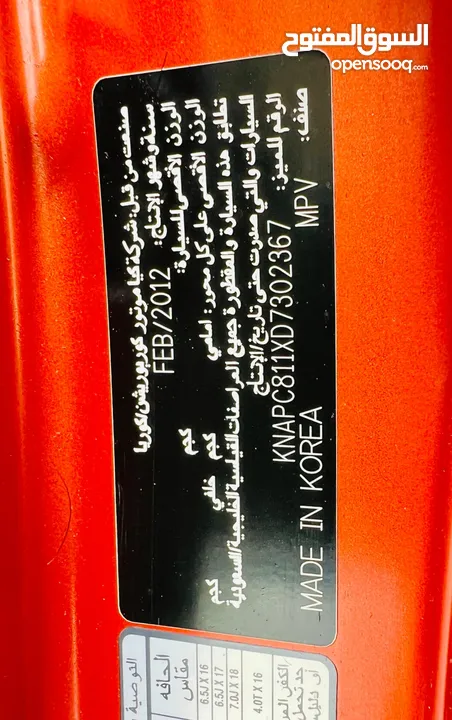 السوق المفتوح
opensooq.com
صنعت من قبل: شركة كيا موتورز كوربوريشن/كوريا
سنة وشهر الانتاج: FEB/2012
الوزن الأقصى للسيارة: كجم
الوزن الأقصى على كل محور: امامي كجم خلفي كجم
تطابق هذه السيارة والمقطورة جميع المواصفات القياسية الخليجية/السعودية
السيارات والتي صدرت حتى تاريخ/الإنتاج
الرقم المميز: KNAPC811XD7302367
صنف: MPV
MADE IN KOREA
التوصية
الحافه
مقاس
6.5J X 16
6.5J X 17
7.0J X 18
4.0T X 16